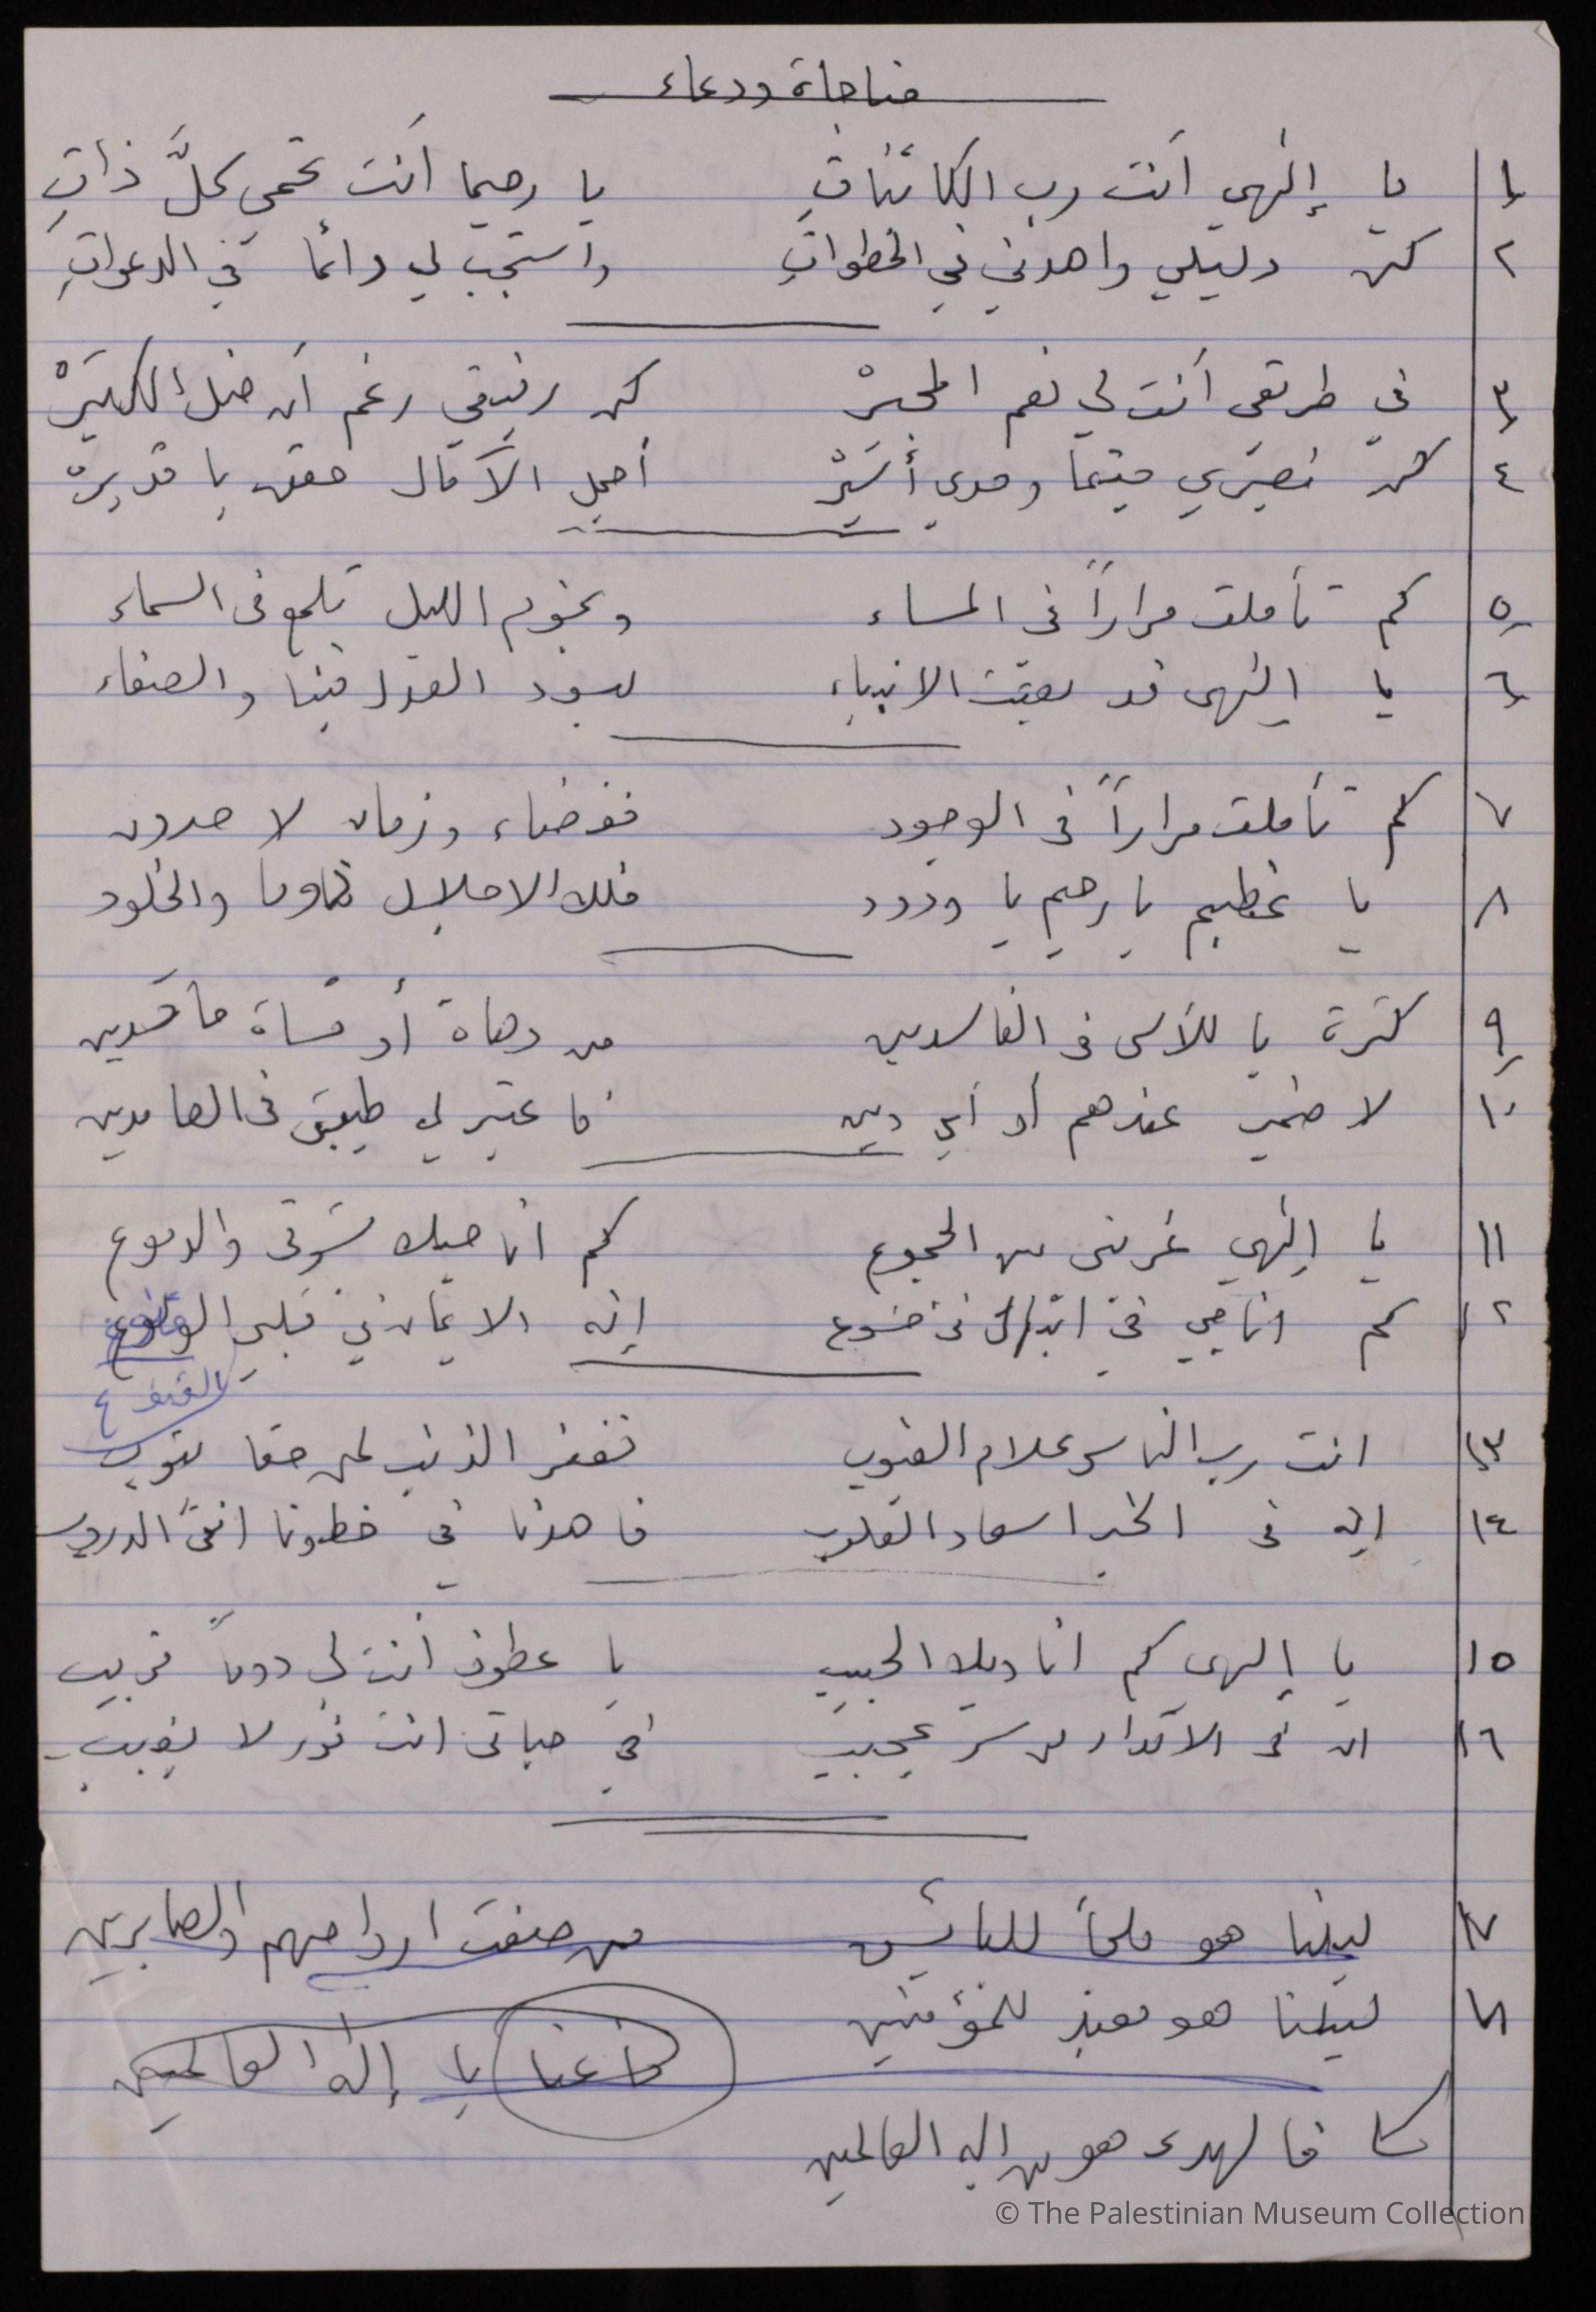 مناجاة ودعاء
١ يا إلهي أنت رب الكائناتِ يا رحيما أنت تحمي كلَّ ذاتِ
٢ كن دليلي واهدني في الخطواتِ واستجب لي دائما في الدعواتِ
٣ في طريقي أنت لي نعم المجيرْ كن رفيقي رغم أن ضل الكثيرْ
٤ كن نصيري حيثما وحدي أسيرْ أجمل الآمال حقق يا قديرْ
٥ كم تأملت مراراً في المساء ونجوم الليل تلمع في السماء
٦ يا إلهي قد بعثت الانبياء ليسود العدل فينا والصفاء
٧ كم تأملت مراراً في الوجود ففضاء وزمان لا حدود
٨ يا عظيم يا رحيم يا ودود فلك الاجلال دوما والخلود
٩ كثرة يا للأسى في الفاسدين من دهاة أو قساة ماكرين
١٠ لا ضمير عندهم أو أي دين فاعتبر لي طيبتي في الصامدين
١١ يا إلهي غربتي بين الجموع كم اناجيك بشوقي والدموع
١٢ كم اناجي في ابتهال في خشوع إنه الايمان في قلبي الولوع
القنوع
١٣ انت رب الناس وعلام الغيوب تغفر الذنب لمن حقا يتوب
١٤ انه في الخير اسعاد القلوب فاهدنا في خطونا انقى الدروب
١٥ يا إلهي كم اناديك الحبيب يا عطوف أنت لي دوماً قريب
١٦ ان في الاقدار من سر عجيب في حياتي انت نور لا يغيب
١٧ ليلنا هو ملجأ للبائسين من صفت ارواحهم والصابرين
١٨ ليلنا هو معبد للمؤمنين فاعنا يا إله العالمين
فالهدى هو من اله العالمين
© The Palestinian Museum Collection